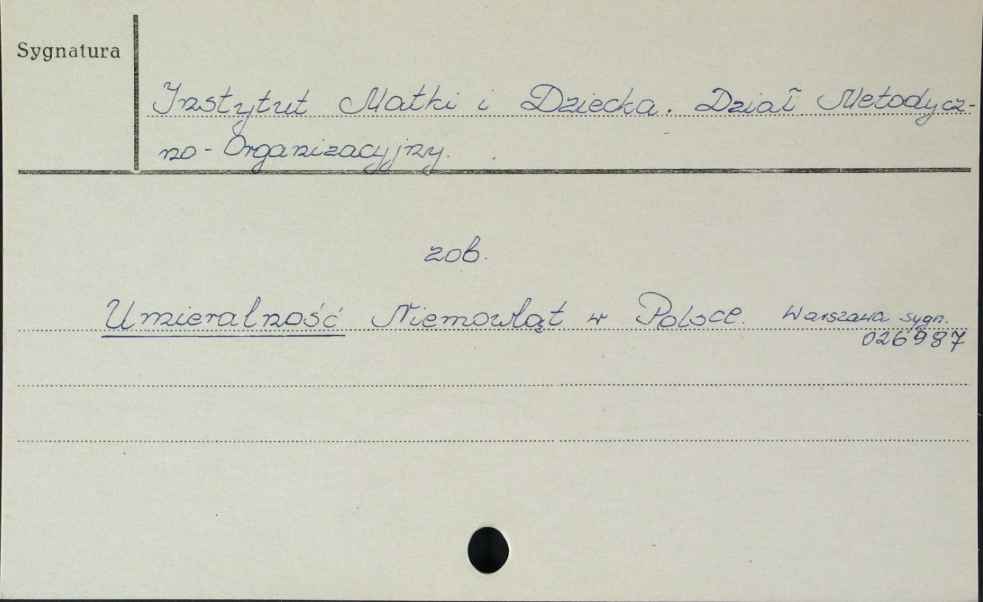 Sygnatura
Instytut Matki i Dziecka. Dział Metodycz-
no-Organizacyjny.
zob.
Umieralność Niemowląt w Polsce. Warszawa sygn.
026987